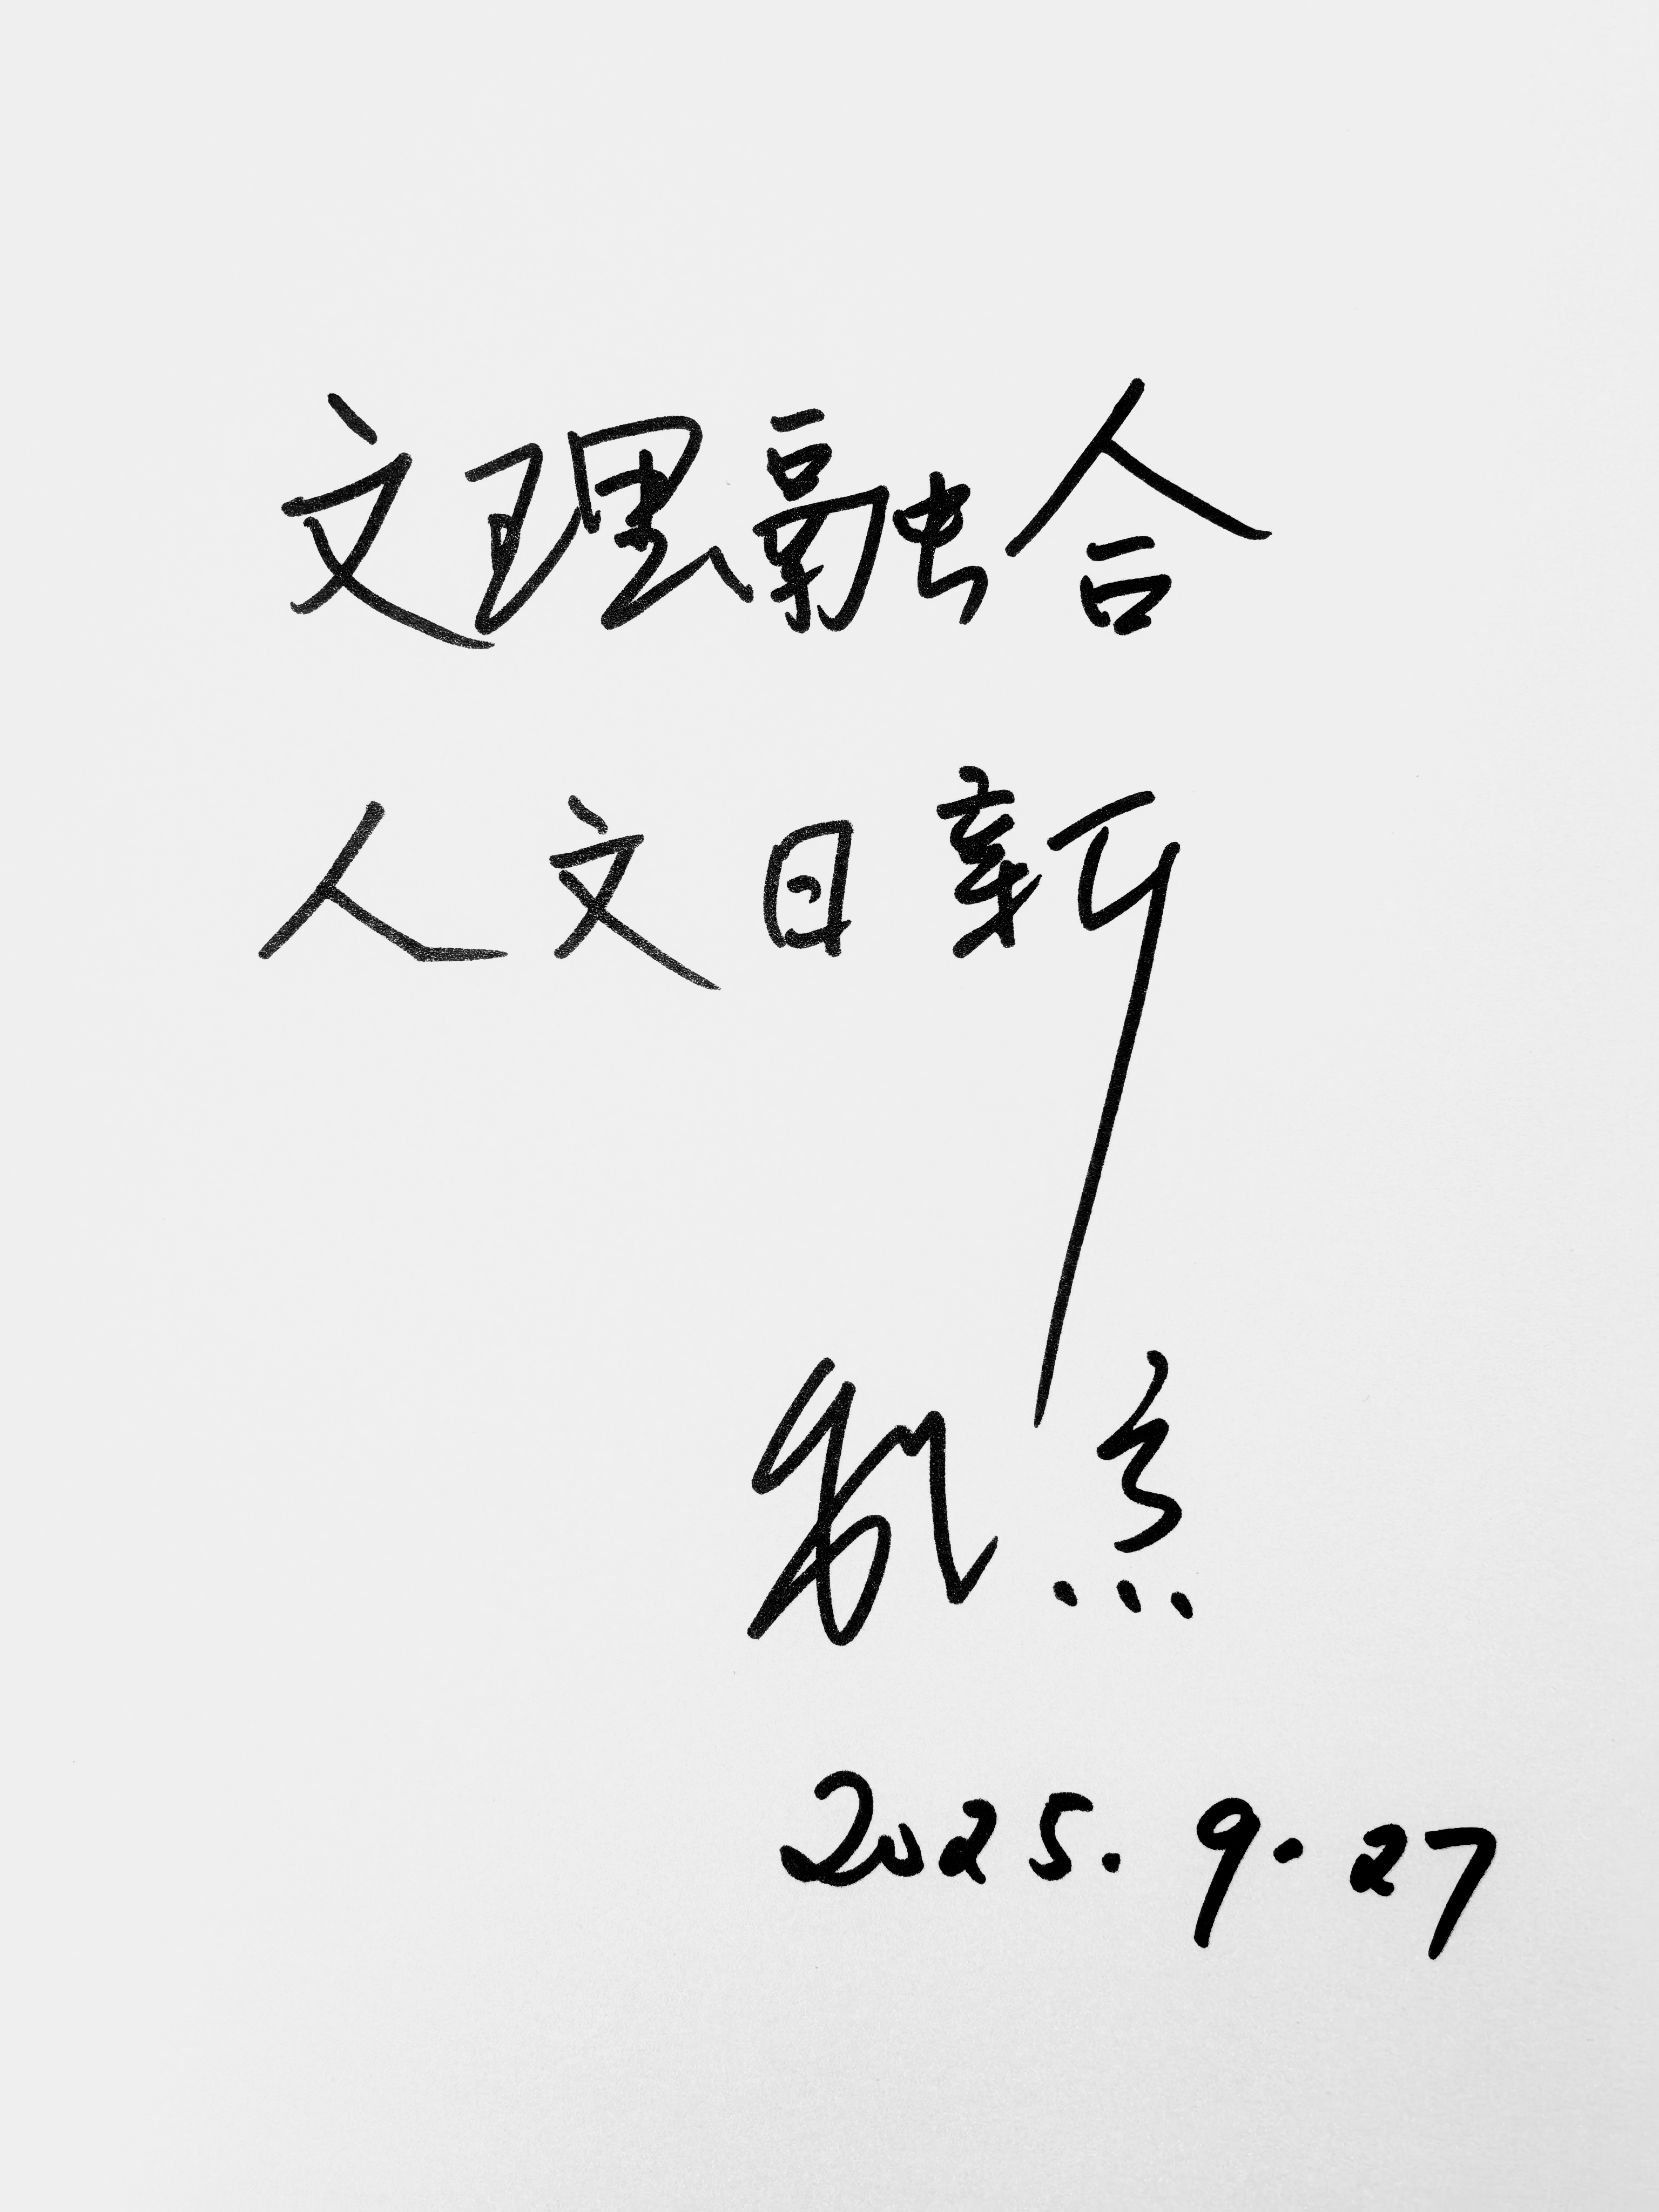 文理融合
人文日新
2025.9.27